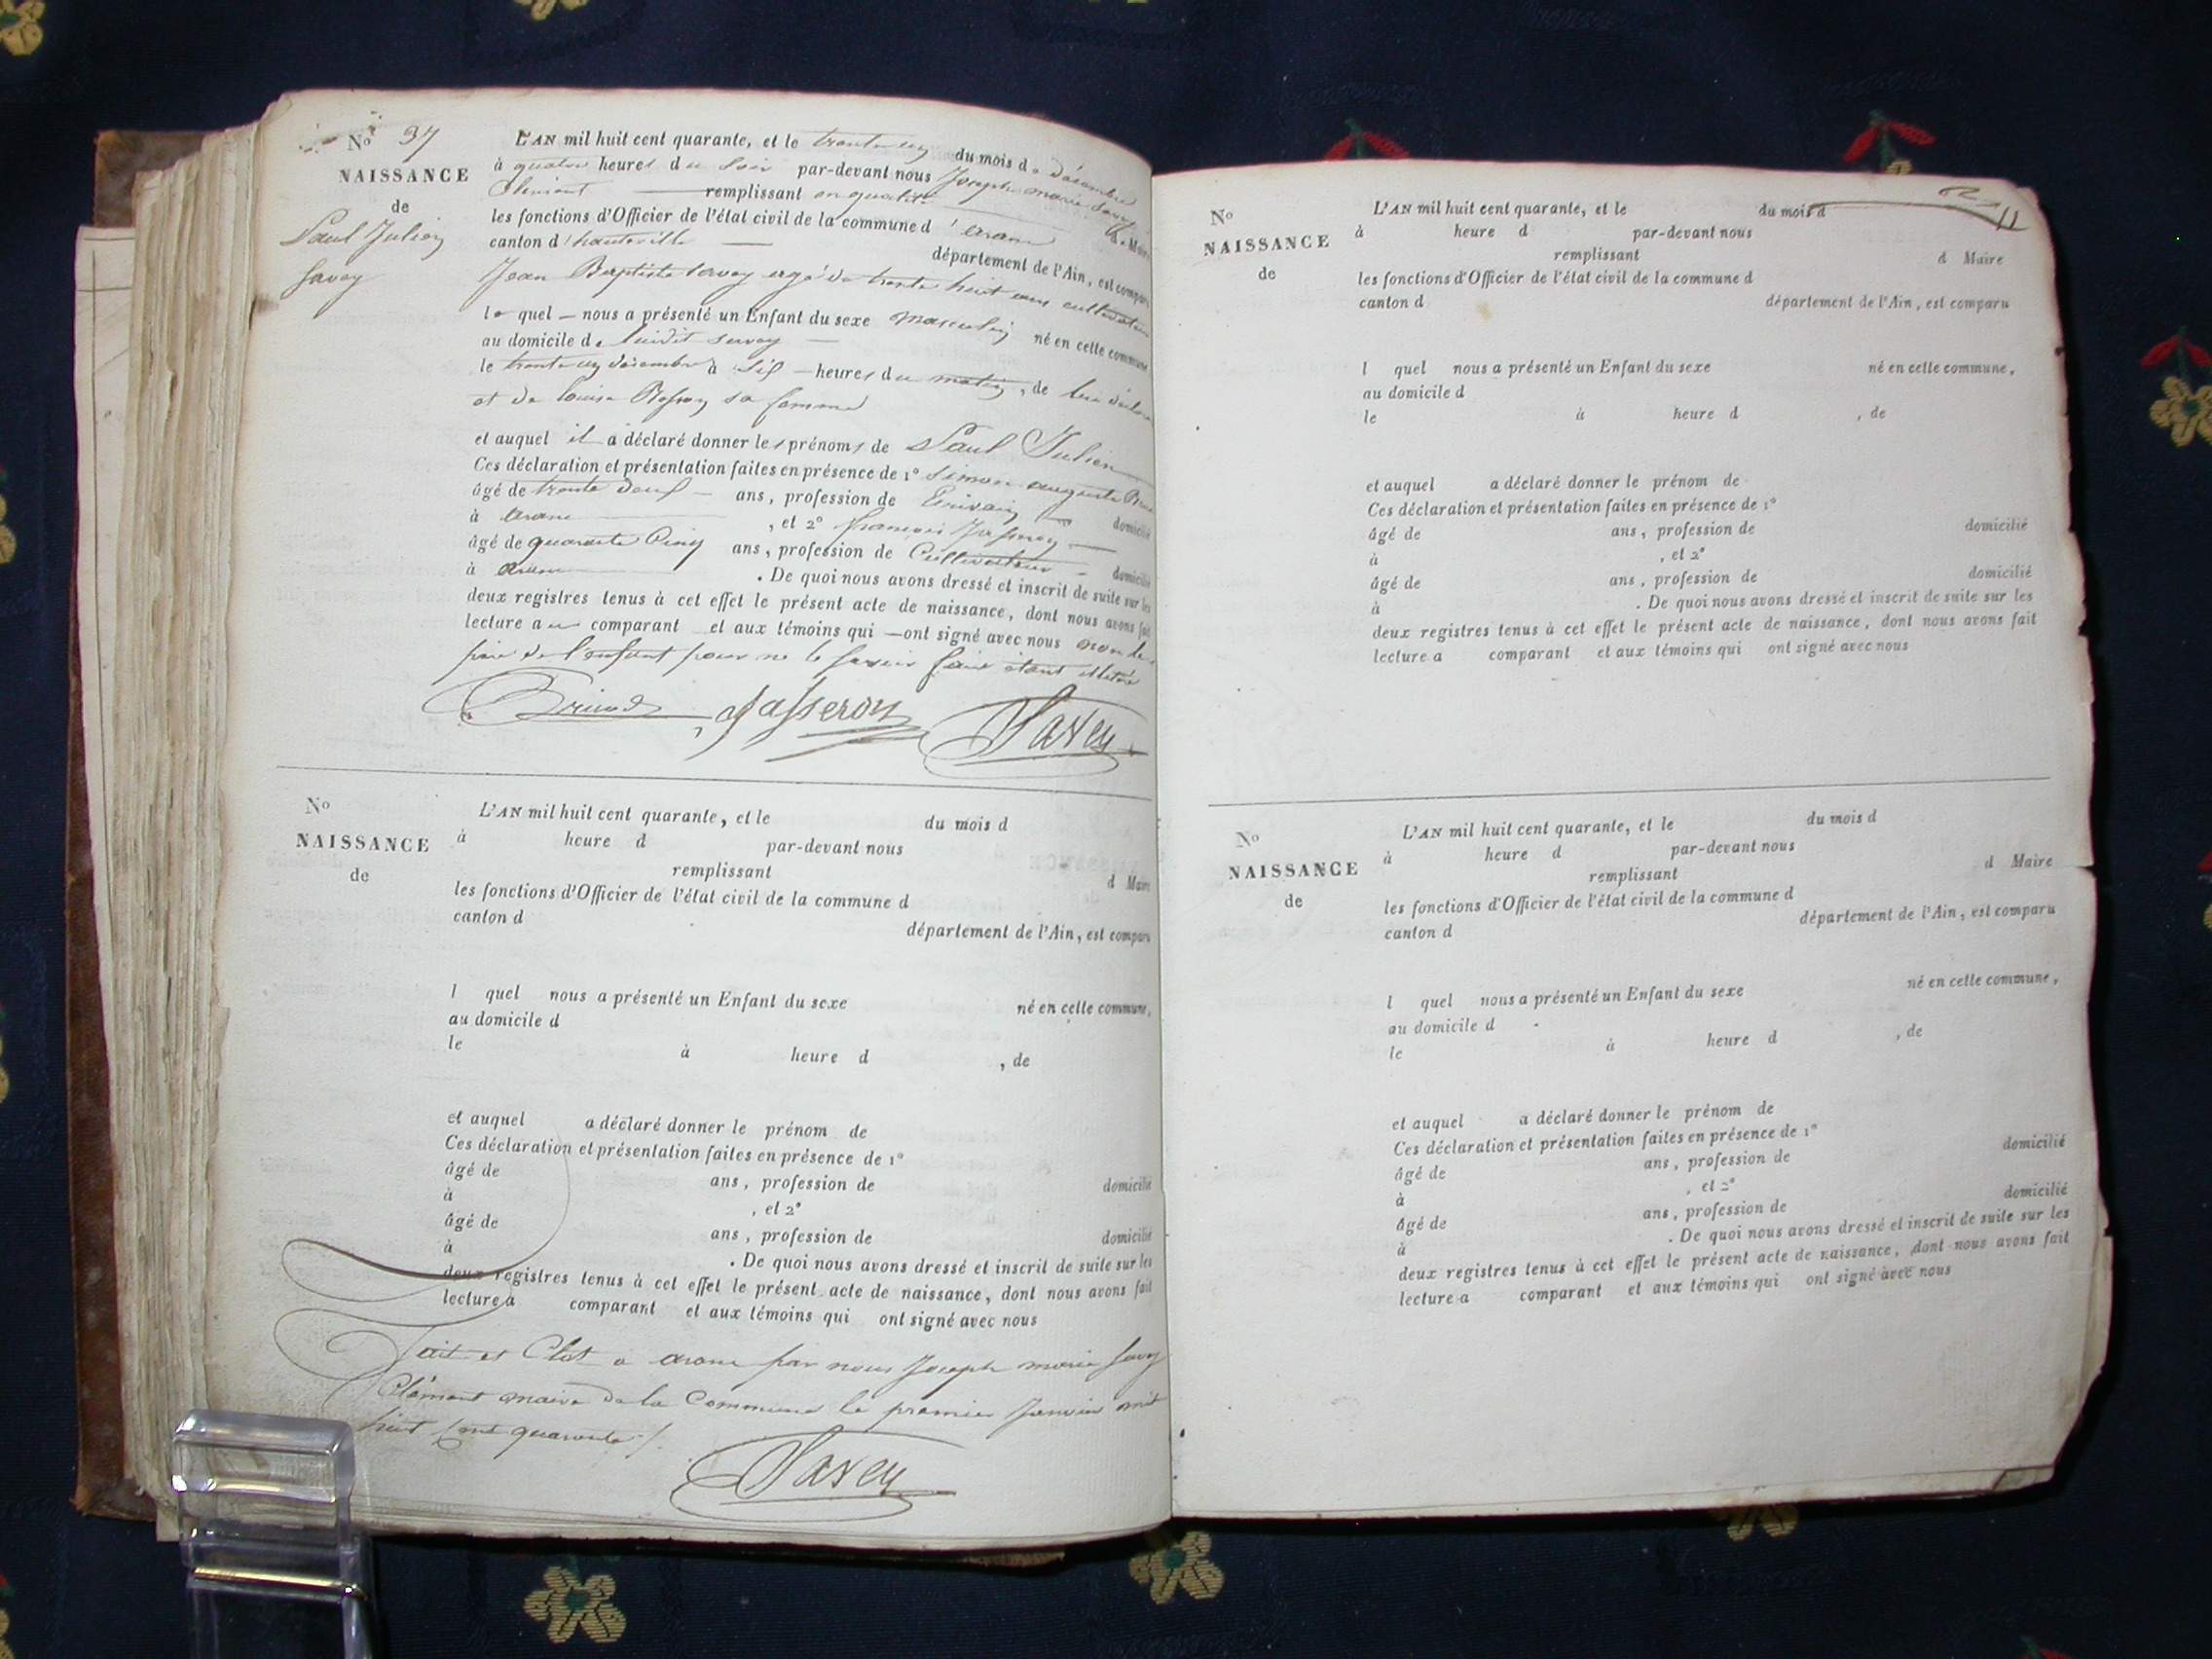 No 37
NAISSANCE
de
Paul Julien
Savey
L'AN mil huit cent quarante, et le trente un du mois de décembre
à quatre heures du soir par-devant nous Joseph marie Savey
Clément remplissant en qualité de Maire
les fonctions d'Officier de l'état civil de la commune d'aranc
canton d'hauteville département de l'Ain, est comparu
Jean Baptiste Savey agé de trente huit ans cultivateur
lequel nous a présenté un Enfant du sexe masculin né en cette commune
au domicile de savey
le trente un décembre à six heures du matin, de lui
et de louise sa femme
et auquel il a déclaré donner les prénoms de Paul Julien
Ces déclaration et présentation faites en présence de 1° Simon auguste
âgé de trente deux ans, profession de Ecrivain domicilié
à aranc, et 2° françois
âgé de quarante Cinq ans, profession de Cultivateur domicilié
à aranc. De quoi nous avons dressé et inscrit de suite sur les
deux registres tenus à cet effet le présent acte de naissance, dont nous avons fait
lecture au comparant et aux témoins qui ont signé avec nous non le
père de l'enfant pour ne le savoir faire étant
Jasseron Savey
No
NAISSANCE
de
L'AN mil huit cent quarante, et le du mois d
à heure d par-devant nous
remplissant d Maire
les fonctions d'Officier de l'état civil de la commune d
canton d département de l'Ain, est comparu
l quel nous a présenté un Enfant du sexe né en cette commune,
au domicile d
le à heure d , de
et auquel a déclaré donner le prénom de
Ces déclaration et présentation faites en présence de 1°
âgé de ans, profession de domicilié
à , et 2°
âgé de ans, profession de domicilié
à . De quoi nous avons dressé et inscrit de suite sur les
deux registres tenus à cet effet le présent acte de naissance, dont nous avons fait
lecture a comparant et aux témoins qui ont signé avec nous
fait et Clot a aranc par nous Joseph marie Savey
Clément maire de la Commune le premier Janvier mil
huit Cent quarante
Savey
No
NAISSANCE
de
L'AN mil huit cent quarante, et le du mois d
à heure d par-devant nous
remplissant d Maire
les fonctions d'Officier de l'état civil de la commune d
canton d département de l'Ain, est comparu
l quel nous a présenté un Enfant du sexe né en cette commune,
au domicile d
le à heure d , de
et auquel a déclaré donner le prénom de
Ces déclaration et présentation faites en présence de 1°
âgé de ans, profession de domicilié
à , et 2°
âgé de ans, profession de domicilié
à . De quoi nous avons dressé et inscrit de suite sur les
deux registres tenus à cet effet le présent acte de naissance, dont nous avons fait
lecture a comparant et aux témoins qui ont signé avec nous
No
NAISSANCE
de
L'AN mil huit cent quarante, et le du mois d
à heure d par-devant nous
remplissant d Maire
les fonctions d'Officier de l'état civil de la commune d
canton d département de l'Ain, est comparu
l quel nous a présenté un Enfant du sexe né en cette commune,
au domicile d
le à heure d , de
et auquel a déclaré donner le prénom de
Ces déclaration et présentation faites en présence de 1°
âgé de ans, profession de domicilié
à , et 2°
âgé de ans, profession de domicilié
à . De quoi nous avons dressé et inscrit de suite sur les
deux registres tenus à cet effet le présent acte de naissance, dont nous avons fait
lecture a comparant et aux témoins qui ont signé avec nous